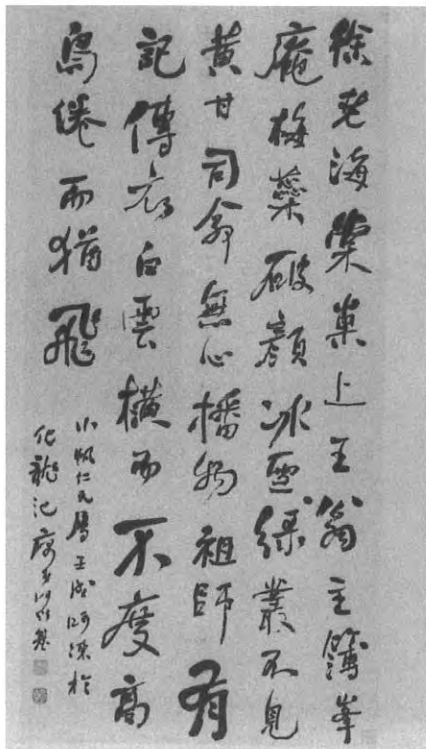 徐老海棠巢上王翁主簿峯
庵梅蘂破顏冰雪綠叢不見
黃甘司命無心播物祖師有
記傳衣白雲橫而不度高
鳥倦而猶飛
小帆仁兄屬壬戌於
化龍池